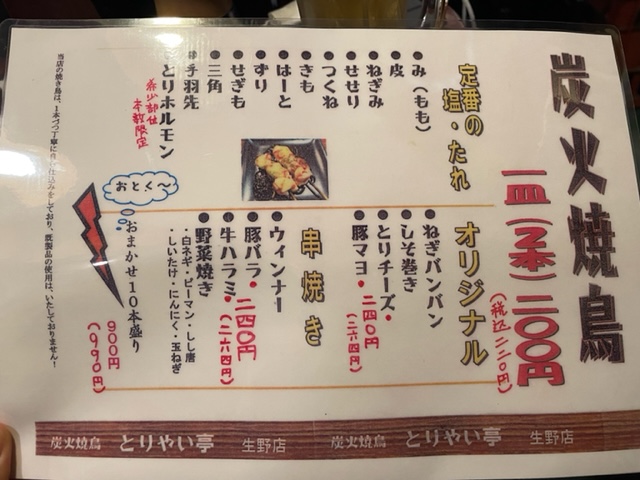 炭火焼鳥
一皿(2本)二〇〇円
(税込二二〇円)
定番の
塩・たれ
●み(もも)
●皮
●ねぎみ
●せせり
●つくね
●きも
●はーと
●ずり
●せぎも
●三角
●手羽先
●とりホルモン
希少部位
本数限定
オリジナル
●ねぎバンバン
●しそ巻き
●とりチーズ・
●豚マヨ・二四〇円
(二六四円)
串焼き
●ウィンナー
●豚バラ・二四〇円
●牛ハラミ・(二六四円)
●野菜焼き
・白ネギ・ピーマン・しし唐
・しいたけ・にんにく・玉ねぎ
おとく〜
おまかせ10本盛り
900円
(990円)
当店の焼き鳥は、1本づつ丁寧に仕込みをしており、既製品の使用は、いたしておりません!
炭火焼鳥 とりやい亭 生野店
炭火焼鳥 とりやい亭 生野店